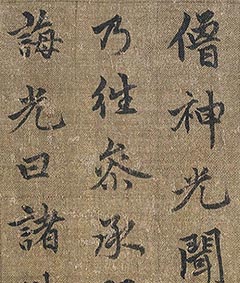 僧神光聞
乃往參承
誨光曰諸